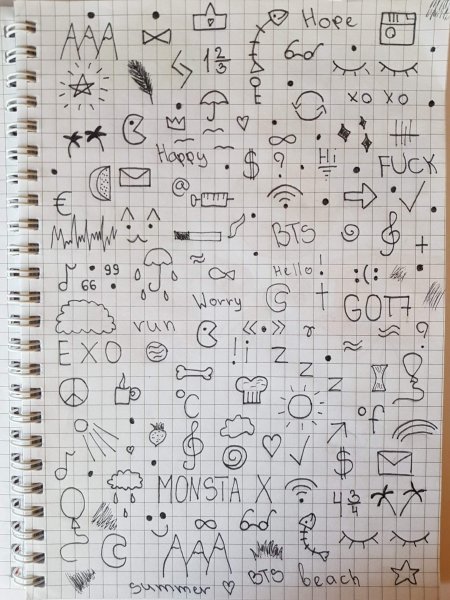 Hope
AAA
1 2/3
XO XO
Happy
$ ?
Hi
FUCK
@
€
BTS
66 99
Hello!
:(:
Worry
GOT7
run
«•» r
?
EXO
!i
z z z
°C
°f
$
MONSTA X
4 3/4
AAA
summer
BTS
beach